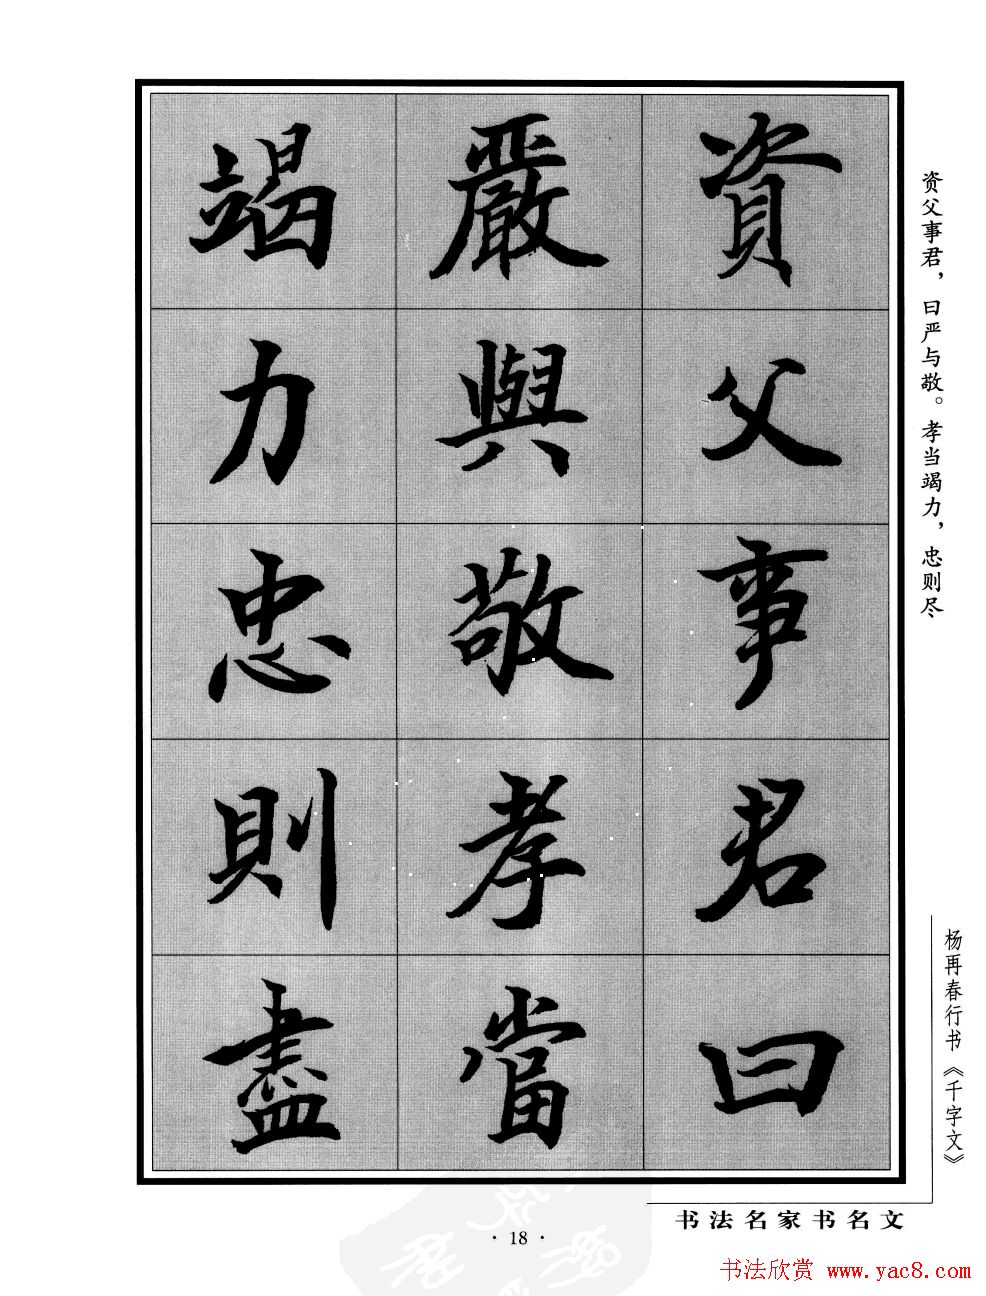 資父事君曰
嚴與敬孝當
竭力忠則盡
资父事君，曰严与敬。孝当竭力，忠则尽
杨再春行书《千字文》
书法名家书名文
· 18 ·
书法欣赏 www.yac8.com